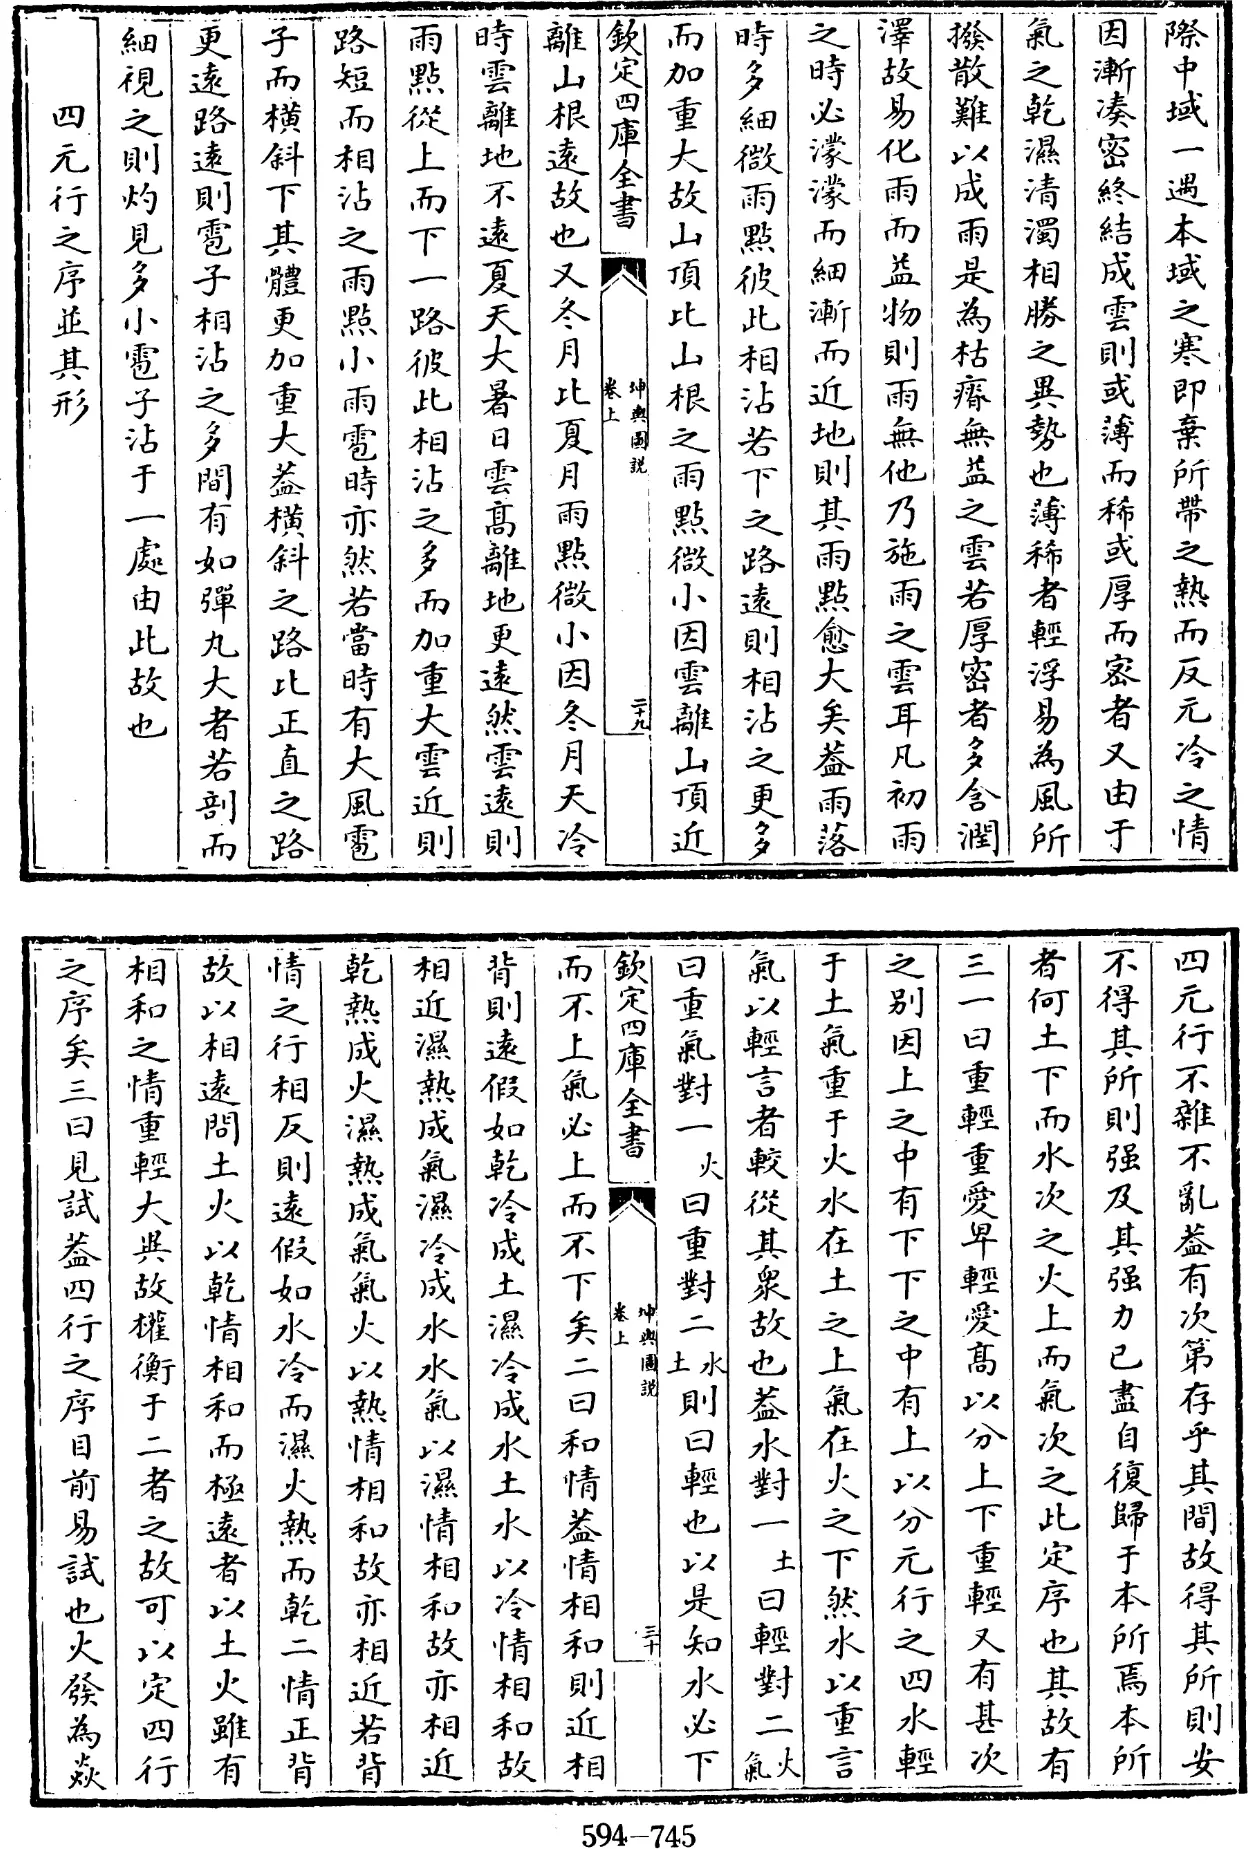 際中域一遇本域之寒即棄所帶之熱而反元冷之情
因漸凑密終結成雲則或薄而稀或厚而密者又由于
氣之乾濕清濁相勝之異勢也薄稀者輕浮易為風所
撥散難以成雨是為枯瘠無益之雲若厚密者多含潤
澤故易化雨而益物則雨無他乃施雨之雲耳凡初雨
之時必濛濛而細漸而近地則其雨點愈大矣蓋雨落
時多細微雨點彼此相沾若下之路遠則相沾之更多
而加重大故山頂比山根之雨點微小因雲離山頂近
欽定四庫全書
坤輿圖說
卷上
二十九
離山根遠故也又冬月比夏月雨點微小因冬月天冷
時雲離地不遠夏天大暑日雲高離地更遠然雲遠則
雨點從上而下一路彼此相沾之多而加重大雲近則
路短而相沾之雨點小雨雹時亦然若當時有大風雹
子而橫斜下其體更加重大蓋橫斜之路比正直之路
更遠路遠則雹子相沾之多間有如彈丸大者若剖而
細視之則灼見多小雹子沾于一處由此故也
四元行之序並其形
四元行不雜不亂蓋有次第存乎其間故得其所則安
不得其所則强及其强力已盡自復歸于本所焉本所
者何土下而水次之火上而氣次之此定序也其故有
三一曰重輕重愛卑輕愛高以分上下重輕又有甚次
之別因上之中有下下之中有上以分元行之四水輕
于土氣重于火水在土之上氣在火之下然水以重言
氣以輕言者較從其衆故也蓋水對一土曰輕對二火氣
曰重氣對一火曰重對二水土則曰輕也以是知水必下
欽定四庫全書
坤輿圖說
卷上
三十
而不上氣必上而不下矣二曰和情蓋情相和則近相
背則遠假如乾冷成土濕冷成水土水以冷情相和故
相近濕熱成氣濕冷成水水氣以濕情相和故亦相近
乾熱成火濕熱成氣氣火以熱情相和故亦相近若背
情之行相反則遠假如水冷而濕火熱而乾二情正背
故以相遠問土火以乾情相和而極遠者以土火雖有
相和之情重輕大異故權衡于二者之故可以定四行
之序矣三曰見試蓋四行之序目前易試也火發為焱
594—745